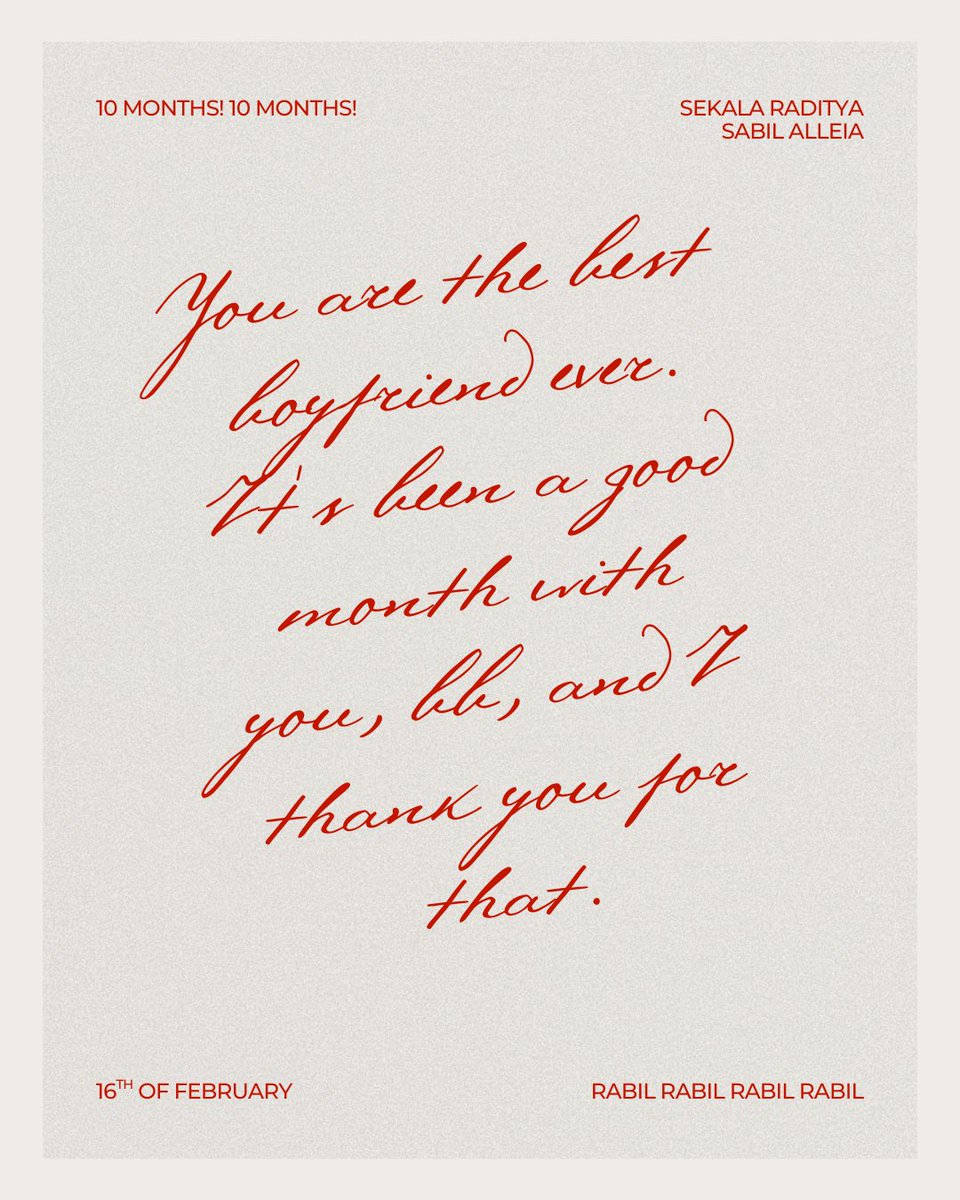 10 MONTHS! 10 MONTHS!
SEKALA RADITYA
SABIL ALLEIA
You are the best
boyfriend ever.
It's been a good
month with
you, bb, and I
thank you for
that.
16TH OF FEBRUARY
RABIL RABIL RABIL RABIL